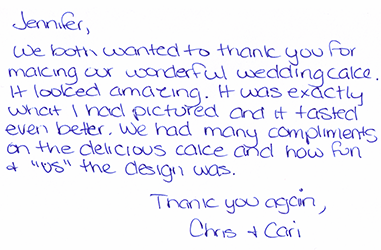 Jennifer,
We both wanted to thank you for
making our wonderful wedding cake.
It looked amazing. It was exactly
what I had pictured and it tasted
even better. We had many compliments
on the delicious cake and how fun
+ "us" the design was.
Thank you again,
Chris + Cari